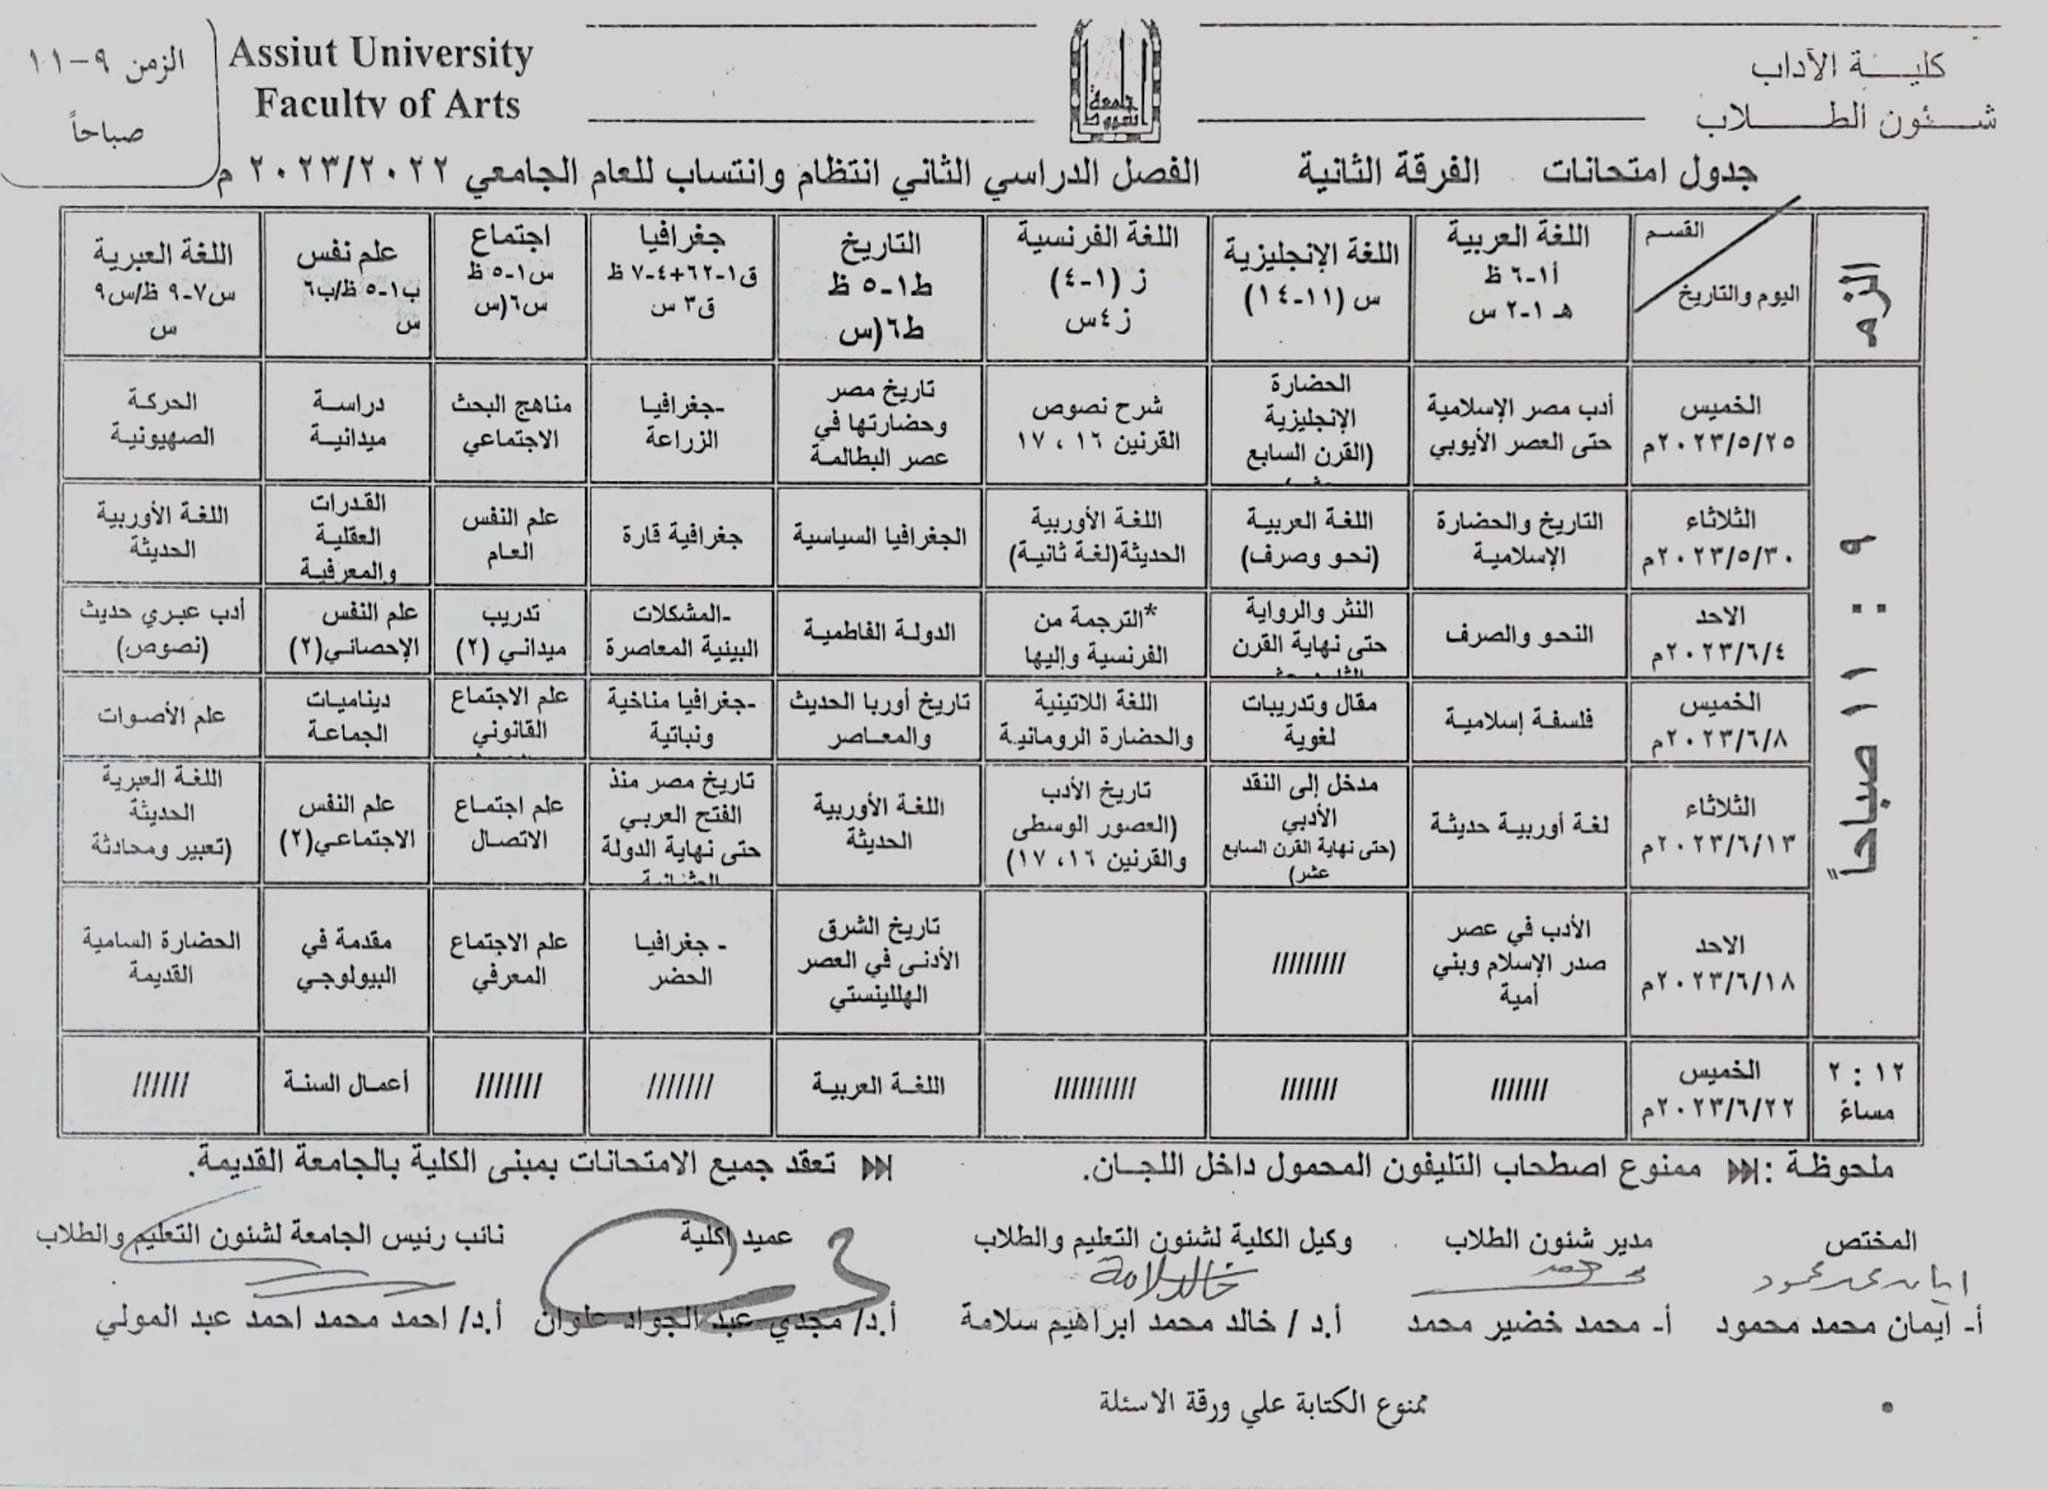 كليــــة الآداب
شــــئون الطــــــلاب
Assiut University
Faculty of Arts
الزمن ٩-١١
صباحاً
جامعة
أسيوط
جدول امتحانات الفرقة الثانية الفصل الدراسي الثاني انتظام وانتساب للعام الجامعي ٢٠٢٣/٢٠٢٢ م
الزم
القسم
اليوم والتاريخ
اللغة العربية
أ١-٦ ظ
هـ ١-٢ س
اللغة الإنجليزية
س (١١-١٤)
اللغة الفرنسية
ز (١-٤)
ز٤س
التاريخ
ط١-٥ ظ
ط٦(س
جغرافيا
ق١-٦٢+٤-٧ ظ
ق٣ س
اجتماع
س١-٥ ظ
س٦(س
علم نفس
ب١-٥ ظ/ب٦
س
اللغة العبرية
س٧-٩ ظ/س٩
س
٩ : ١١ صباحاً
الخميس
٢٠٢٣/٥/٢٥م
أدب مصر الإسلامية
حتى العصر الأيوبي
الحضارة
الإنجليزية
(القرن السابع
شرح نصوص
القرنين ١٦ ، ١٧
تاريخ مصر
وحضارتها في
عصر البطالمة
-جغرافيا
الزراعة
مناهج البحث
الاجتماعي
دراسة
ميدانية
الحركة
الصهيونية
الثلاثاء
٢٠٢٣/٥/٣٠م
التاريخ والحضارة
الإسلامية
اللغة العربية
(نحو وصرف)
اللغة الأوربية
الحديثة(لغة ثانية)
الجغرافيا السياسية
جغرافية قارة
علم النفس
العام
القدرات
العقلية
والمعرفية
اللغة الأوربية
الحديثة
الاحد
٢٠٢٣/٦/٤م
النحو والصرف
النثر والرواية
حتى نهاية القرن
*الترجمة من
الفرنسية وإليها
الدولة الفاطمية
-المشكلات
البينية المعاصرة
تدريب
ميداني (٢)
علم النفس
الإحصائي(٢)
أدب عبري حديث
(نصوص)
الخميس
٢٠٢٣/٦/٨م
فلسفة إسلامية
مقال وتدريبات
لغوية
اللغة اللاتينية
والحضارة الرومانية
تاريخ أوربا الحديث
والمعاصر
-جغرافيا مناخية
ونباتية
علم الاجتماع
القانوني
ديناميات
الجماعة
علم الأصوات
الثلاثاء
٢٠٢٣/٦/١٣م
لغة أوربية حديثة
مدخل إلى النقد
الأدبي
(حتى نهاية القرن السابع
عشر)
تاريخ الأدب
(العصور الوسطى
والقرنين ١٦، ١٧)
اللغة الأوربية
الحديثة
تاريخ مصر منذ
الفتح العربي
حتى نهاية الدولة
علم اجتماع
الاتصال
علم النفس
الاجتماعي(٢)
اللغة العبرية
الحديثة
(تعبير ومحادثة
الاحد
٢٠٢٣/٦/١٨م
الأدب في عصر
صدر الإسلام وبني
أمية
/////////
تاريخ الشرق
الأدنى في العصر
الهللينستي
- جغرافيا
الحضر
علم الاجتماع
المعرفي
مقدمة في
البيولوجي
الحضارة السامية
القديمة
١٢ : ٢
مساءً
الخميس
٢٠٢٣/٦/٢٢م
///////
///////
//////////
اللغة العربية
///////
///////
أعمال السنة
//////
ملحوظة : ممنوع اصطحاب التليفون المحمول داخل اللجان. تعقد جميع الامتحانات بمبنى الكلية بالجامعة القديمة.
المختص مدير شئون الطلاب وكيل الكلية لشئون التعليم والطلاب عميد الكلية نائب رئيس الجامعة لشئون التعليم والطلاب
ايمان محمد محمود
خالد سلامة
أ- ايمان محمد محمود أ- محمد خضير محمد أ.د / خالد محمد ابراهيم سلامة أ.د/ مجدي عبد الجواد علوان أ.د/ احمد محمد احمد عبد المولي
• ممنوع الكتابة علي ورقة الاسئلة